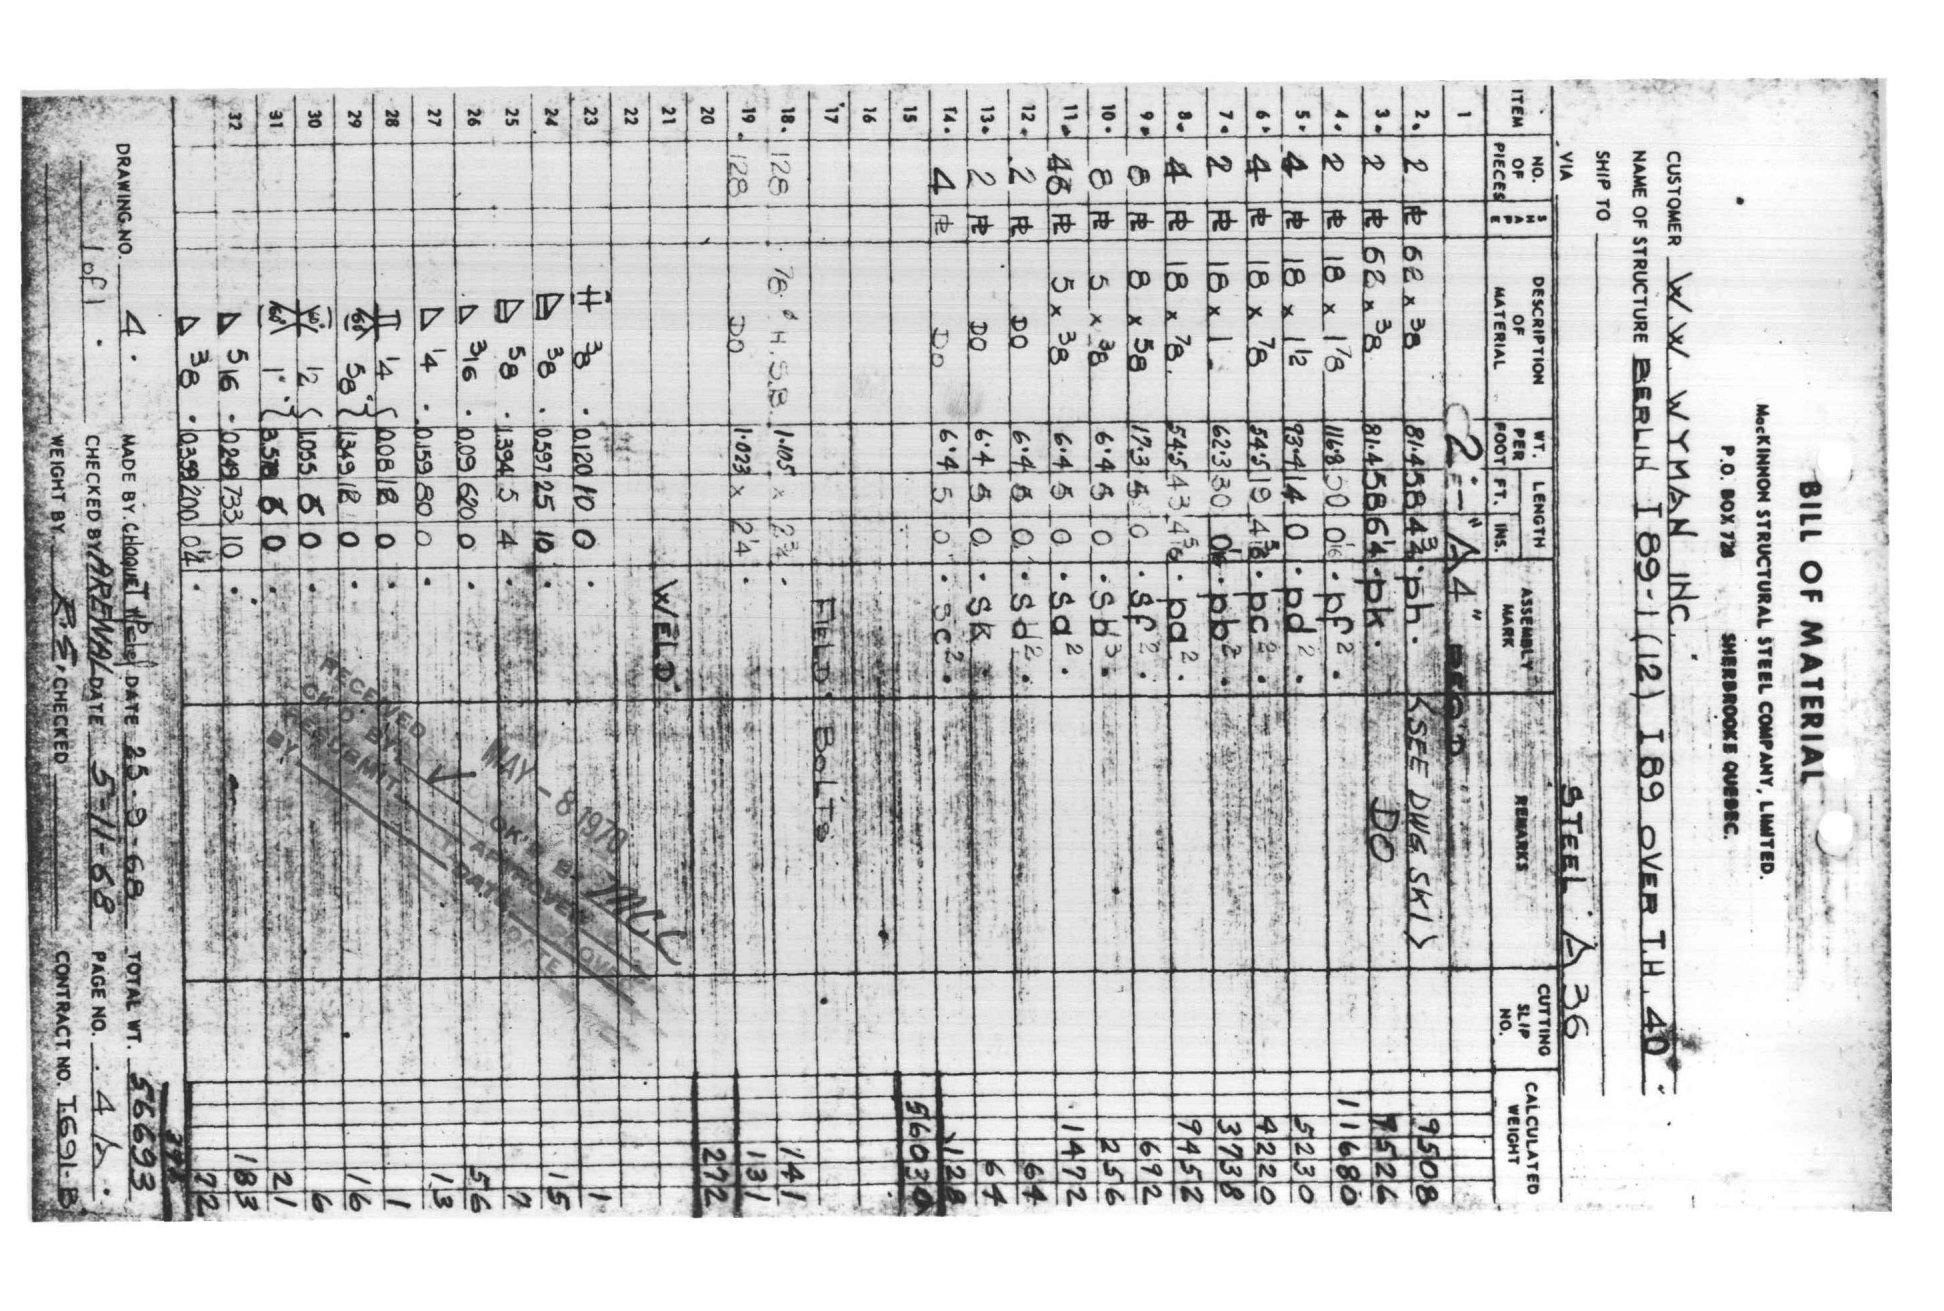 BILL OF MATERIAL
MacKINNON STRUCTURAL STEEL COMPANY, LIMITED.
P.O. BOX 728 SHERBROOKE QUEBEC.
CUSTOMER W.W. WYMAN INC.
NAME OF STRUCTURE BERLIN I 89-1 (12) I 89 OVER T.H. 40
SHIP TO
VIA STEEL A 36
ITEM NO. OF PIECES SHAPE DESCRIPTION OF MATERIAL WT. PER FOOT LENGTH FT. INS. ASSEMBLY MARK REMARKS CUTTING SLIP NO. CALCULATED WEIGHT
1 2 :- "A4" REQ'D
2. 2 PL 62 x 3/8 81.4 58 4 3/4 . ph. (SEE DWG SK1) 9508
3. 2 PL 62 x 3/8 81.4 58 6 1/4 . pk. DO 9526
4. 2 PL 18 x 1 7/8 116.8 50 0 1/16 . pf2. 11680
5. 4 PL 18 x 1 1/2 93.4 14 0 . pd2. 5230
6. 4 PL 18 x 7/8 54.5 19 4 5/16 . pc2. 4220
7. 2 PL 18 x 1 62.3 30 0 1/16 . pb2. 3738
8. 4 PL 18 x 7/8. 54.5 43 4 5/16 . pa2. 9452
9. 8 PL 8 x 5/8 17.3 5 0 . sf2. 692
10. 8 PL 5 x 3/8 6.4 5 0 . sb3. 256
11. 48 PL 5 x 3/8 6.4 5 0 . sa2. 1472
12. 2 PL DO 6.4 5 0 . 64
13. 2 PL DO 6.4 5 0 . sk 64
14. 4 PL DO 6.4 5 0 . sc2. 128
15 56030
16
17 FIELD. BOLTS
18. 128 7/8 ø H.S.B. 1.105 x 2 3/4 . 141
19. 128 DO 1.023 x 2 1/4 . 131
20 272
21 WELD.
22
23 3/8 . 0.120 10 0 . 1
24 3/8 . 0.597 25 10 . 15
25 5/8 . 1.394 5 4 . 7
26 3/16 . 0.09 620 0 . 56
27 1/4 . 0.159 80 0 . 13
28 1/4 0.08 18 0 . 1
29 60° 5/8 1.349 12 0 . 16
30 1/2 1.055 0 . 6
31 60° 1" 3.578 6 0 21
32 5/16 . 0.249 733 10 . 183
3/8 . 0.359 200 0 1/4 . 72
392
RECEIVED MAY - 8 1970
CK'D BY OK'D BY
RESUBMIT APPROVED
BY DATE
DRAWING NO. 4. MADE BY CHOQUET DATE 25-9-68 TOTAL WT. 56693
1 of 1. CHECKED BY ARENAL DATE 5-11-68 PAGE NO. 4
WEIGHT BY R.E. CHECKED CONTRACT NO. I.691-B.